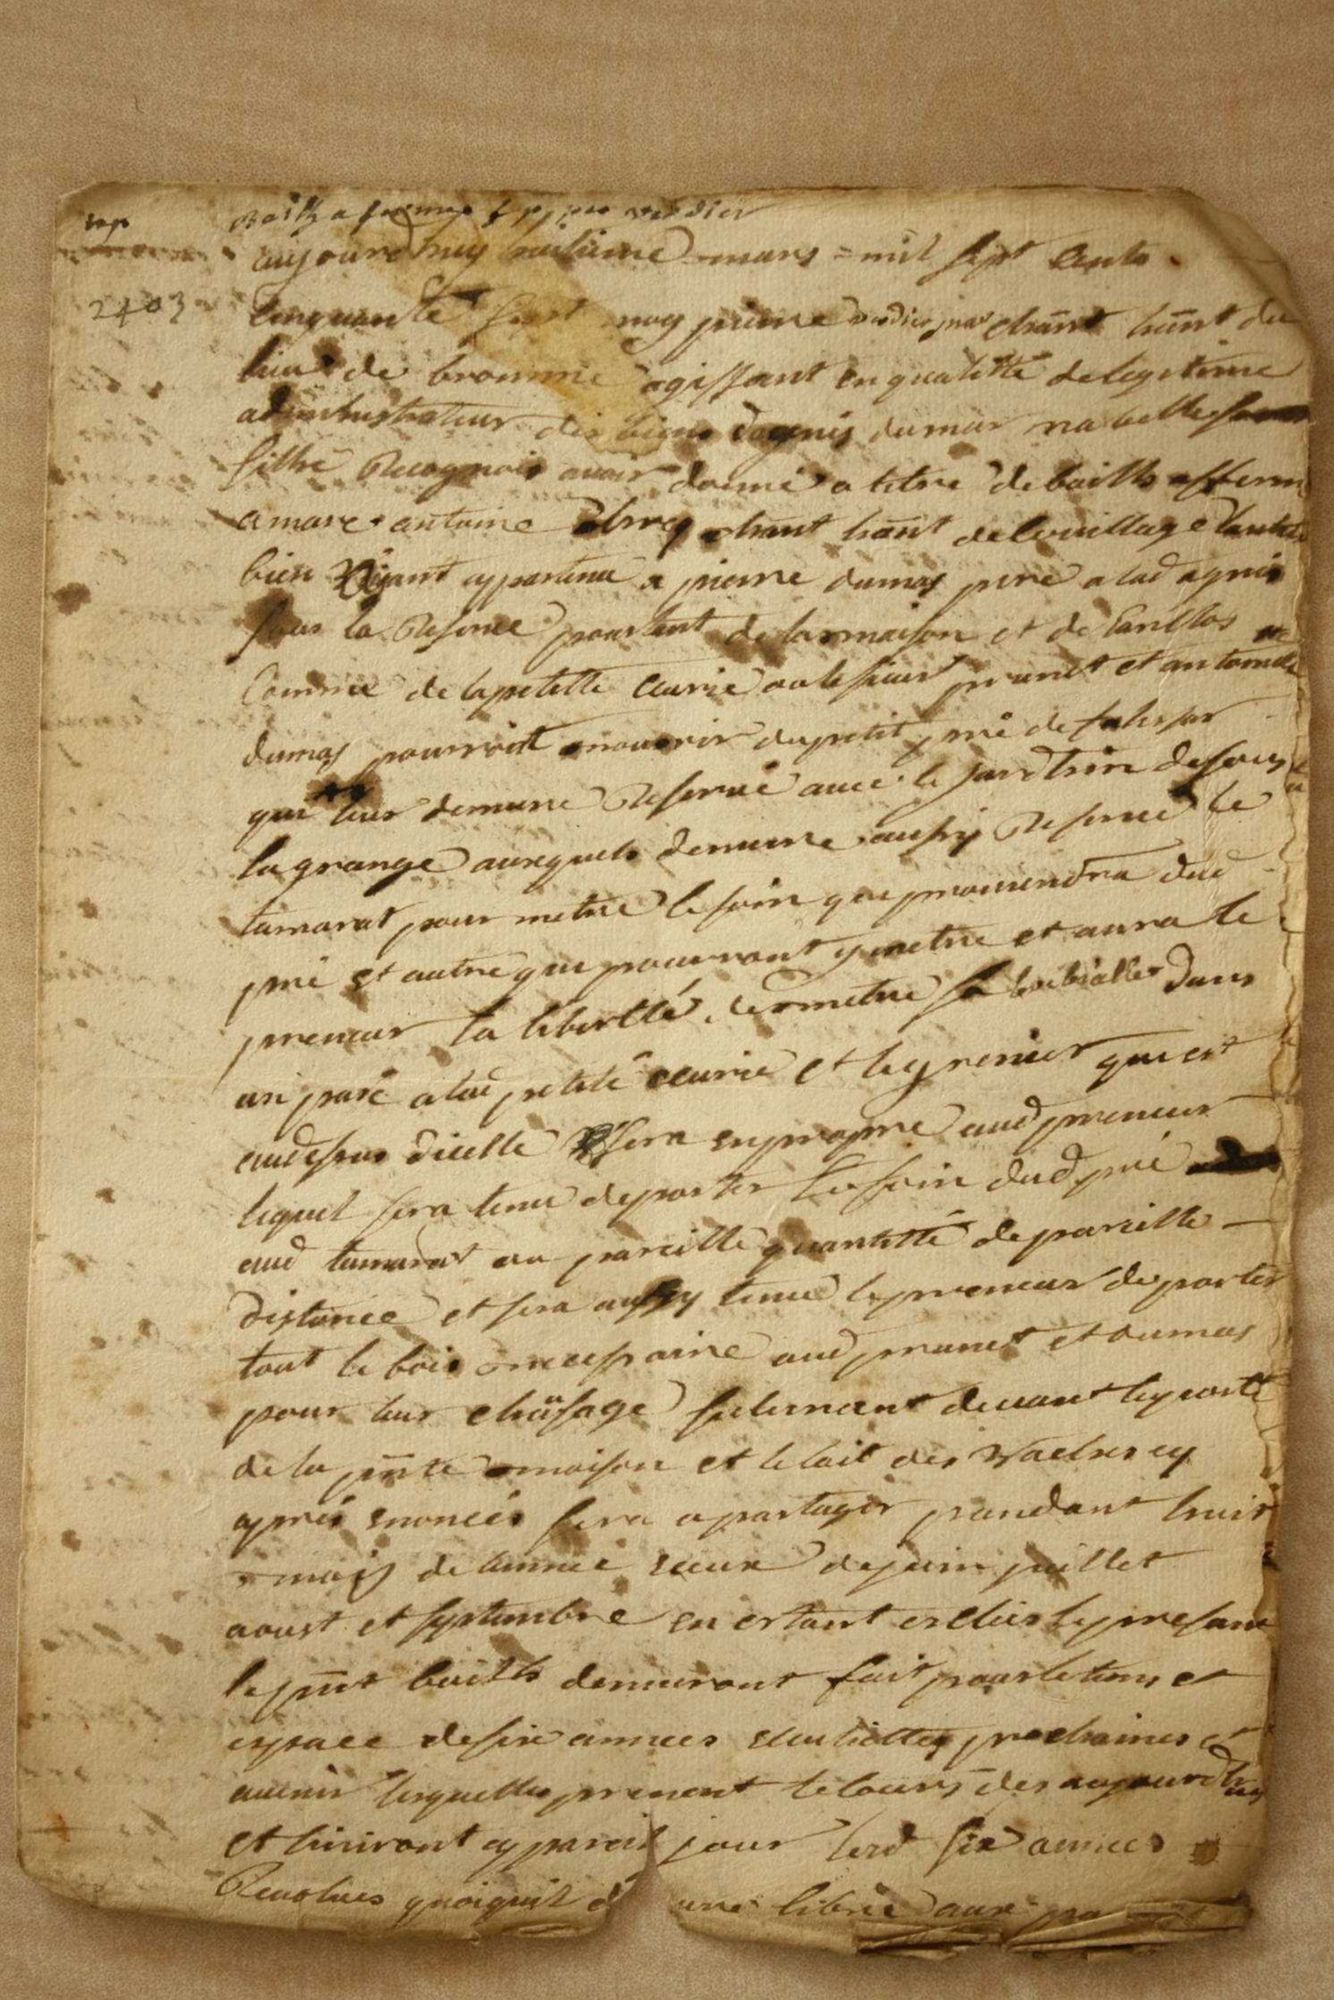 bailh a ferme p pierre verdier
2403
aujourdhuy huitieme mars = mil sept cents
cinquante sept moy pierre verdier pnar chant hant du
lieu de brommé agissant en qualitté de legitime
administrateur des biens dagnis dumas ma belle
fillie Recognois avoir donné a titre de bailh afferme
a marc antoine chant hant de le
bien ayant appartenu a pierre dumas pere a lad agnis
sous la Reserve pourtant de la maison et de
Comme de la petitte ecurie ou le sieur prunet et antoine
dumas pourront nourrir du petit pré de
qui leur demure Reservé avec le jardrin desous
la grange auxquels demure aussy Reservé le
tamarat pour metre le foin que proviendra dud
pré et autre que pourront y metre et aura le
preneur la libertté de metre dans
un parc a lad petite ecurie et le grenier qui est
audessus dicelle sera en propre aud preneur
lequel sera tenu de porter le foin dud pré
aud tamarat ou pareille quantitté de pareille
distance et sera aussy tenu le preneur de porter
tout le bois necessaire aud prunet et dumas
pour leur chofage sulemant devant la porte
de la pnte maison et le lait des vaches cy
apres enoncés sera a partager pandant huit
mois de lannée ceux de juin juillet
aoust et septembre en estant exclus
le pnt bailh demurant fait pour le tems et
espace de six années prochaines et
avenir lesquelles prenent le cours des aujourdhuy
et finiront a pareil jour lesd six années
Revolues quoiquil libre aux